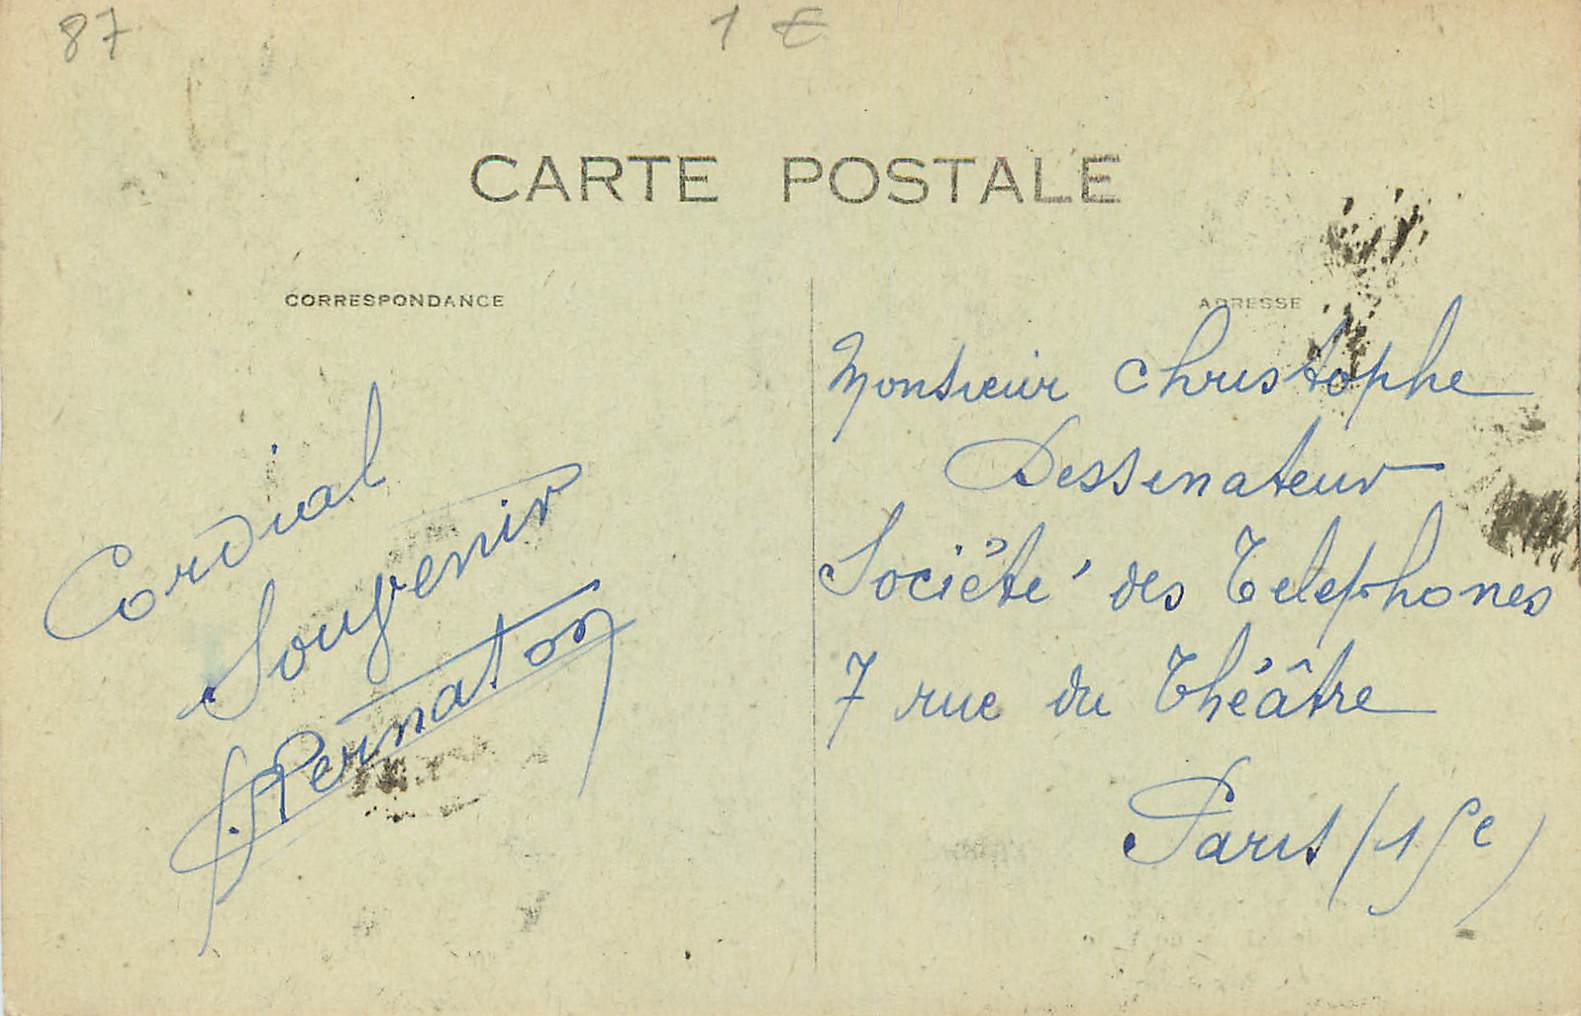 87
1 €
CARTE POSTALE
CORRESPONDANCE
ADRESSE
Cordial
Souvenir
Pernaton
Monsieur Christophe
Dessinateur
Société des Telephones
7 rue du Théâtre
Paris (15e)